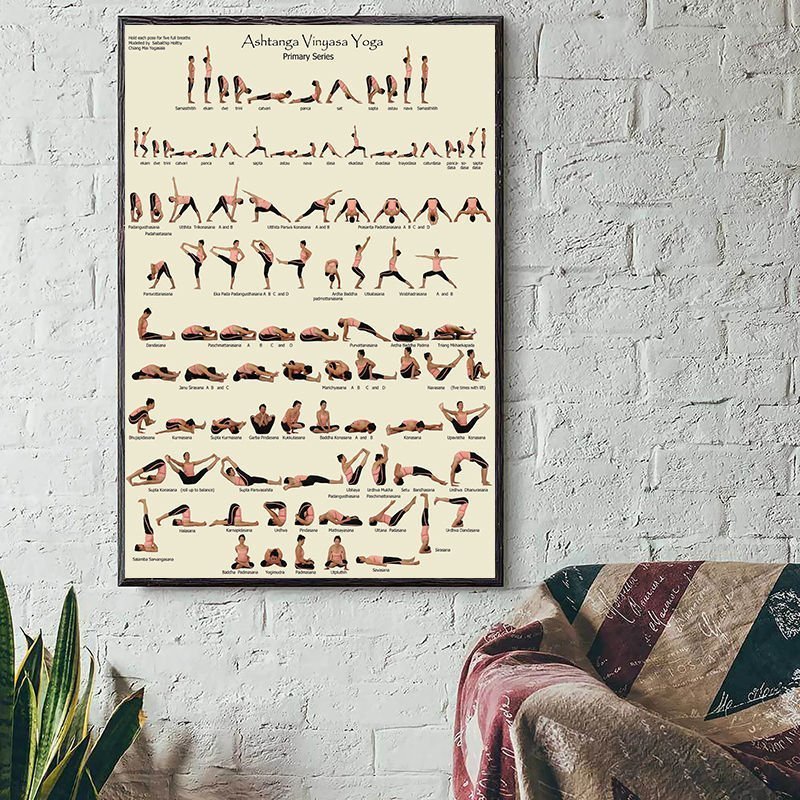 Hold each pose for five full breaths
Ashtanga Vinyasa Yoga
Primary Series
Chiang Mai Yogasala
Samasthitih ekam dve trini catvari panca sat sapta astau nava Samasthitih
ekam dve trini catvari panca sat sapta astau nava dasa ekadasa dvadasa trayodasa caturdasa
Padangusthasana Utthita Trikonasana A and B Utthita Parsva Konasana A and B Prasarita Padottanasana A B C and D
Padahastasana
Parsvottanasana Eka Pada Padangusthasana A B C and D Ardha Baddha Utkatasana Virabhadrasana A and B
padmottanasana
Dandasana Paschimattanasana A B C and D Purvottanasana Ardha Baddha Padma Triang Mukhaekapada
Janu Sirsasana A B and C Marichyasana A B C and D Navasana (five times with lift)
Bhujapidasana Kurmasana Supta Kurmasana Garba Pindasana Kukkutasana Baddha Konasana A and B Konasana Upavistha Konasana
Supta Konasana (roll up to balance) Supta Parsvasahita Ubhaya Urdhva Mukha Setu Bandhasana Urdhva Dhanurasana
Padangusthasana Paschimattanasana
Salamba Sarvangasana Halasana Karnapidasana Urdhva Pindasana Matsyasana Uttana Padasana Sirsasana Urdhva Dandasana
Baddha Padmasana Yogimudra Padmasana Utpluthih Savasana